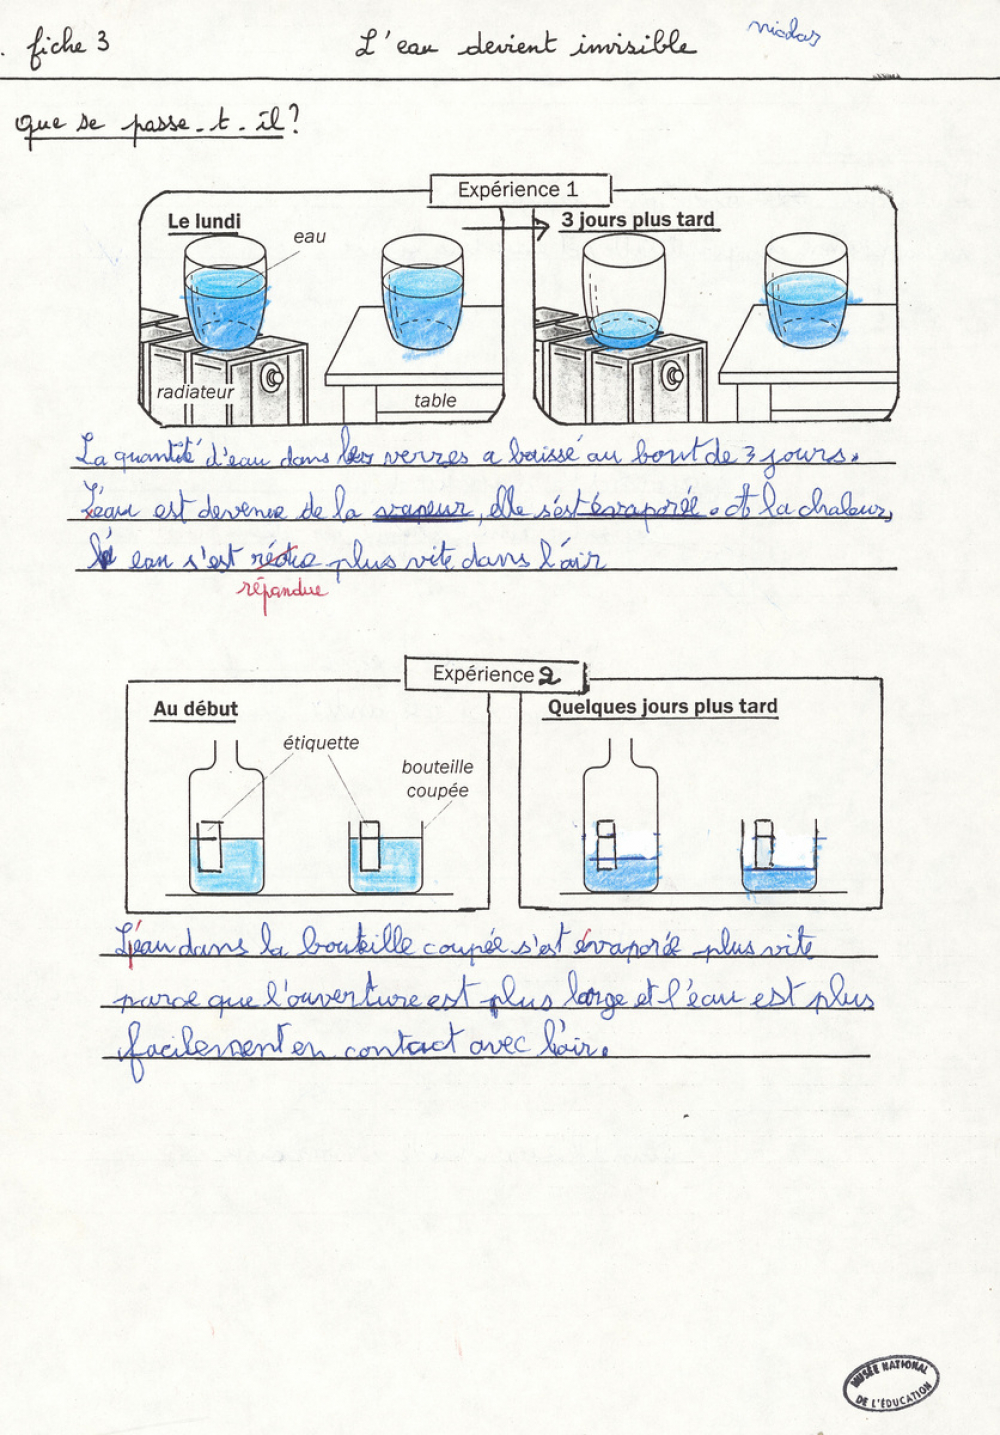 . fiche 3 L'eau devient invisible nicolas
que se passe-t-il?
Expérience 1
Le lundi 3 jours plus tard
eau
radiateur
table
La quantité d'eau dans les verres a baissé au bout de 3 jours.
L'eau est devenue de la vapeur, elle s'est évaporée. A la chaleur,
l'eau s'est plus vite dans l'air
répandue
Expérience 2
Au début Quelques jours plus tard
étiquette
bouteille
coupée
L'eau dans la bouteille coupée s'est évaporée plus vite
parce que l'ouverture est plus large et l'eau est plus
facilement en contact avec l'air.
MUSÉE NATIONAL
DE L'ÉDUCATION